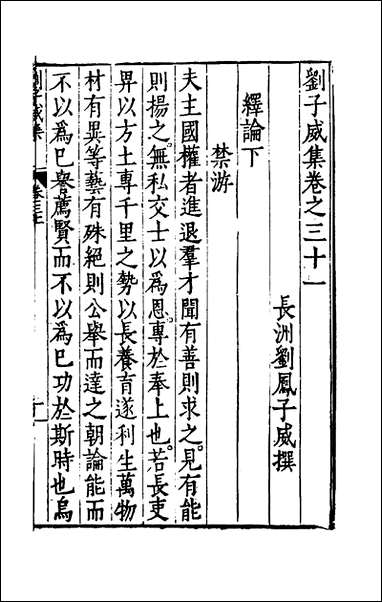 劉子威集卷之三十一
長洲劉鳳子威撰
繹論下
禁游
夫主國權者進退羣才聞有善則求之見有能
則揚之無私交士以爲恩專於奉上也若長吏
畀以方土專千里之勢以長養育遂利生萬物
材有異等藝有殊絕則公舉而達之朝論能而
不以爲已譽薦賢而不以爲已功於斯時也烏